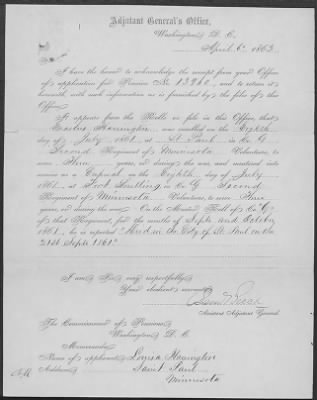 Adjutant General's Office,
Washington, D. C.
April 6th 1863.
Sir:
I have the honor to acknowledge the receipt from your Office
of application for Pension No. 13960, and to return it
herewith with such information as is furnished by the files of this
Office.
It appears from the Rolls on file in this Office, that
was enrolled on the Eighth
day of July 1861, at St Paul in Co. G
Second Regiment of Minnesota Volunteers, to
serve Three years, or during the war, and mustered into
service as a Corporal on the Eighth day of July
1861, at Fort Snelling, in Co. G Second
Regiment of Minnesota Volunteers, to serve Three
years, or during the war. On the Muster Roll of Co. G
of that Regiment, for the months of Sept. and October
1861, he is reported "Died in the City of St. Paul on the
21st Sept. 1861."
I am Sir, very respectfully,
Your obedient servant,
Assistant Adjutant General.
The Commissioner of Pensions,
Washington, D. C.
Memoranda.
Name of applicant, Louisa
Address, Saint Paul
Minnesota